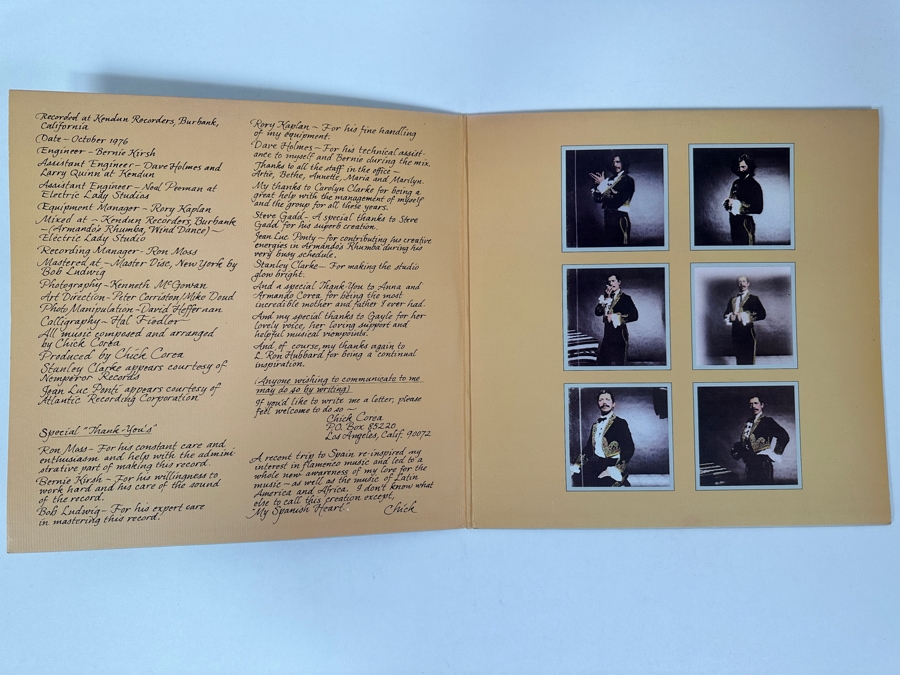 Recorded at Kendun Recorders, Burbank,
California
Date - October 1976
Engineer - Bernie Kirsh
Assistant Engineer - Dave Holmes and
Larry Quinn at Kendun
Assistant Engineer - Neal Peeman at
Electric Lady Studios
Equipment Manager - Rory Kaplan
Mixed at - Kendun Recorders, Burbank
- (Armando's Rhumba, Wind Dance) -
Electric Lady Studio
Recording Manager - Ron Moss
Mastered at - Master Disc, New York by
Bob Ludwig
Photography - Kenneth McGowan
Art Direction - Peter Corriston/Mike Doud
Photo Manipulation - David Heffernan
Calligraphy - Hal Fiedler
All music composed and arranged
by Chick Corea
Produced by Chick Corea
Stanley Clarke appears courtesy of
Nemperor Records
Jean Luc Ponti appears courtesy of
Atlantic Recording Corporation
Special "Thank-You's"
Ron Moss - For his constant care and
enthusiasm and help with the admini-
strative part of making this record.
Bernie Kirsh - For his willingness to
work hard and his care of the sound
of the record.
Bob Ludwig - For his expert care
in mastering this record.
Rory Kaplan - For his fine handling
of my equipment.
Dave Holmes - For his technical assist-
ance to myself and Bernie during the mix.
Thanks to all the staff in the office -
Artie, Bethe, Annette, Maria and Marilyn.
My thanks to Carolyn Clarke for being a
great help with the management of myself
and the group for all these years.
Steve Gadd - A special thanks to Steve
Gadd for his superb creation.
Jean Luc Ponty - for contributing his creative
energies in Armando's Rhumba during his
very busy schedule.
Stanley Clarke - For making the studio
glow bright.
And a special Thank-You to Anna and
Armando Corea for being the most
incredible mother and father I ever had.
And my special thanks to Gayle for her
lovely voice, her loving support and
helpful musical viewpoints.
And, of course, my thanks again to
L. Ron Hubbard for being a continual
inspiration.
(Anyone wishing to communicate to me
may do so by writing)
If you'd like to write me a letter, please
feel welcome to do so -
Chick Corea
P.O. Box 85220
Los Angeles, Calif. 90072
A recent trip to Spain re-inspired my
interest in flamenco music and led to a
whole new awareness of my love for the
music - as well as the music of Latin
America and Africa. I don't know what
else to call this creation except,
"My Spanish Heart". Chick